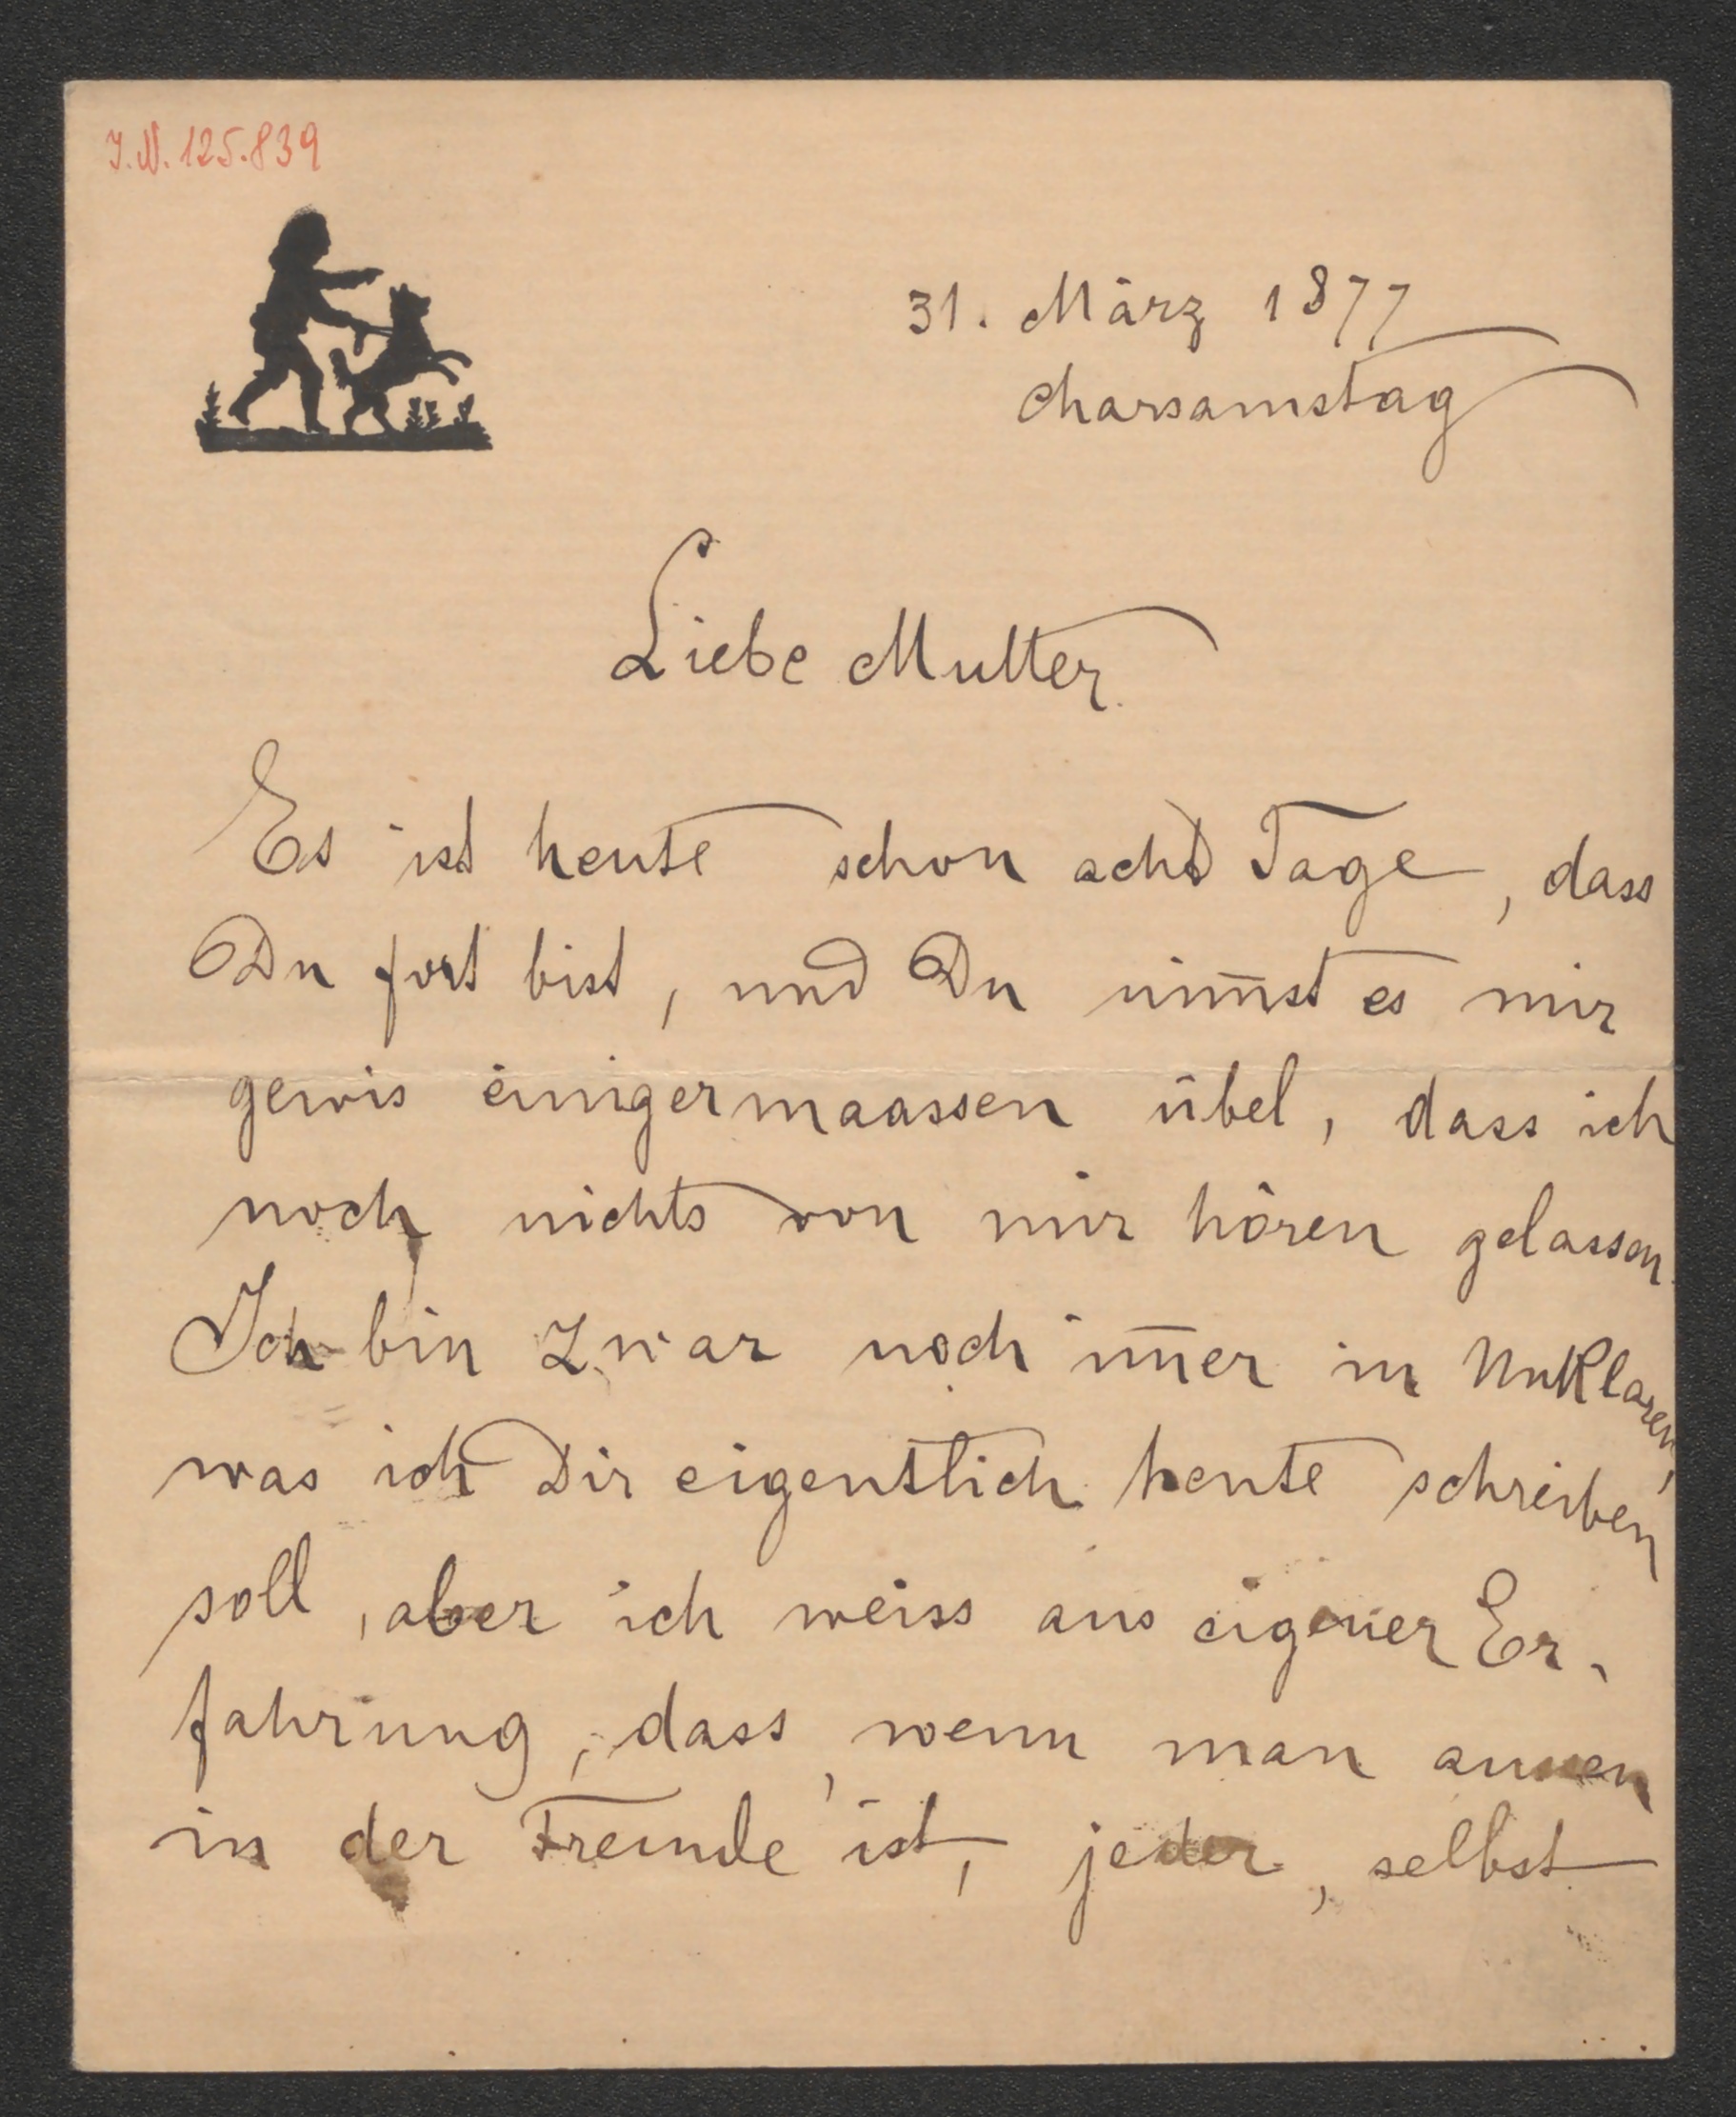 I.N. 125.839
31. März 1877
Charsamstag
Liebe Mutter.
Es ist heute schon acht Tage, dass
Du fort bist, und Du nim̅st es mir
gewis einigermaassen übel, dass ich
noch nichts von mir hören gelassen.
Ich bin zwar noch im̅er im Unklaren,
was ich Dir eigentlich heute schreiben
soll, aber ich weiss aus eigener Er-
fahrung, dass, wenn man aussen
in der Fremde ist, jeder, selbst